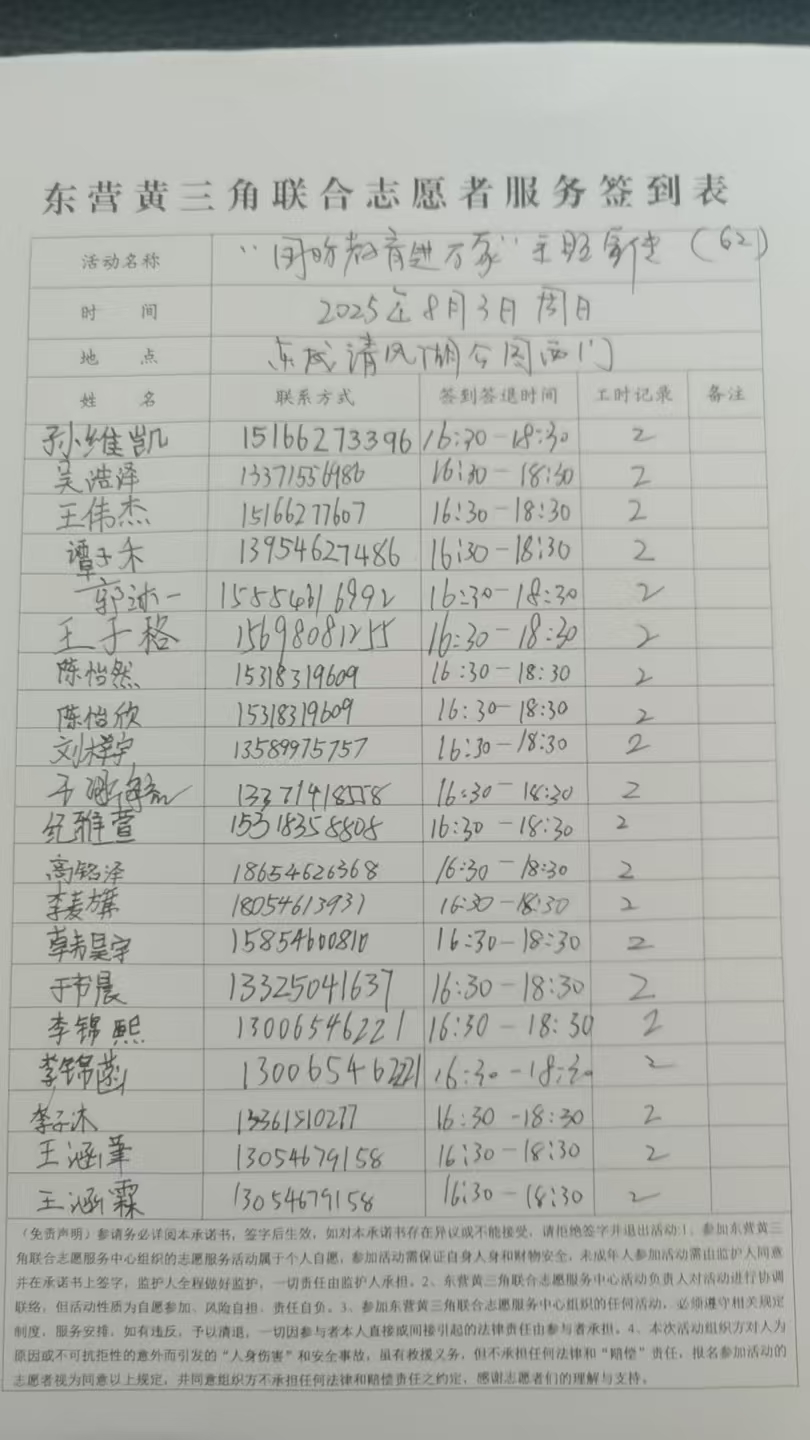 东营黄三角联合志愿者服务签到表
活动名称 “国防教育进万家”主题宣传（62）
时 间 2025年8月3日 周日
地 点 东城清风湖公园西门
姓 名 联系方式 签到签退时间 工时记录 备注
孙维凯 15166273396 16:30-18:30 2
吴浩泽 13371556986 16:30-18:30 2
王伟杰 15166277607 16:30-18:30 2
谭子禾 13954627486 16:30-18:30 2
郭沭一 15554616992 16:30-18:30 2
王子格 15698081255 16:30-18:30 2
陈怡然 15318319609 16:30-18:30 2
陈怡欣 15318319609 16:30-18:30 2
刘梓宇 13589975757 16:30-18:30 2
13371418558 16:30-18:30 2
纪雅萱 15318358808 16:30-18:30 2
高铭泽 18654626368 16:30-18:30 2
李麦旗 18054613931 16:30-18:30 2
韩昊宇 15854600810 16:30-18:30 2
于书晨 13325041637 16:30-18:30 2
李锦熙 13006546221 16:30-18:30 2
李锦菡 13006546221 16:30-18:30 2
李子沐 13361510277 16:30-18:30 2
王涵 13054679158 16:30-18:30 2
王涵霖 13054679158 16:30-18:30 2
（免责声明）参请务必详阅本承诺书，签字后生效，如对本承诺书存在异议或不能接受，请拒绝签字并退出活动:1、参加东营黄三
角联合志愿服务中心组织的志愿服务活动属于个人自愿，参加活动需保证自身人身和财物安全，未成年人参加活动需由监护人同意
并在承诺书上签字，监护人全程做好监护，一切责任由监护人承担。2、东营黄三角联合志愿服务中心活动负责人对活动进行协调
联络，但活动性质为自愿参加、风险自担、责任自负。3、参加东营黄三角联合志愿服务中心组织的任何活动，必须遵守相关规定
制度，服务安排，如有违反，予以清退，一切因参与者本人直接或间接引起的法律责任由参与者承担。4、本次活动组织方对人为
原因或不可抗拒性的意外而引发的“人身伤害”和安全事故，虽有救援义务，但不承担任何法律和“赔偿”责任，报名参加活动的
志愿者视为同意以上规定，并同意组织方不承担任何法律和赔偿责任之约定，感谢志愿者们的理解与支持。